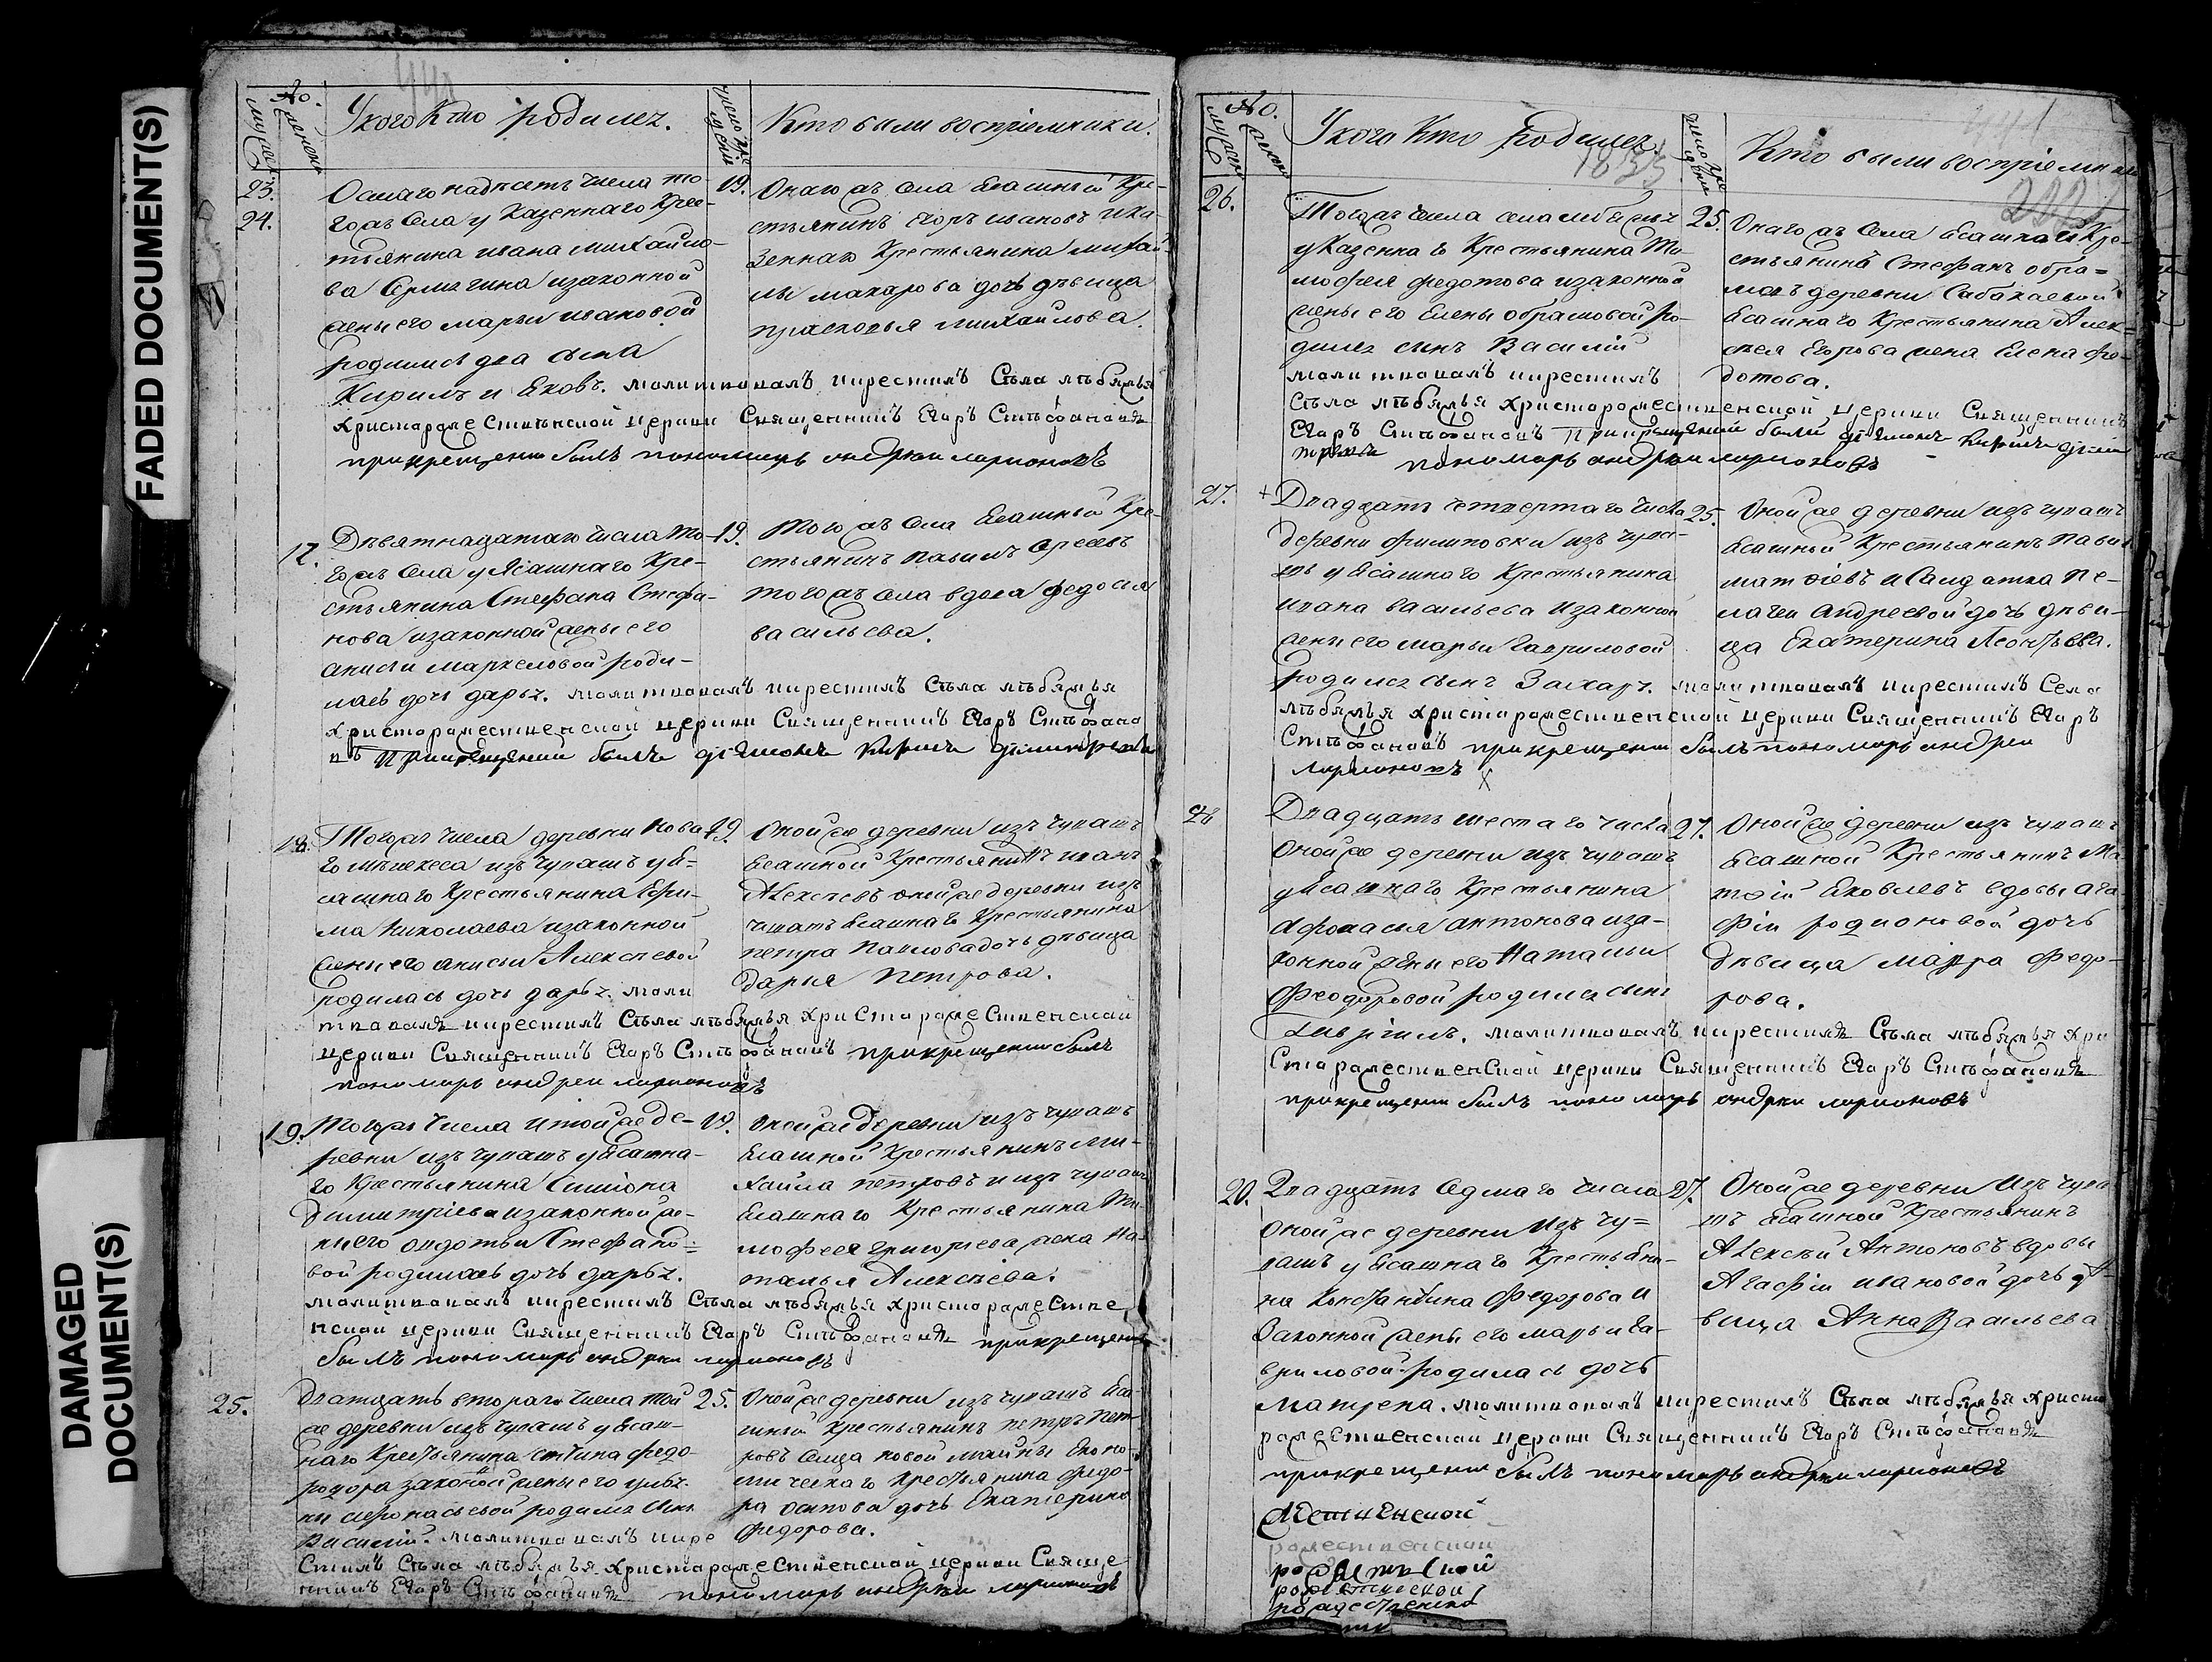 FADED DOCUMENT(S)
DAMAGED
DOCUMENT(S)
440
No.
У кого Кто родилсz.
Кто были воспріемники.
23.
24.
Осмагонадцать числа то-
гожъ села у Казеннаго Крес-
тьянина ивана михайло-
ва изаконной
жены его марьи ивановой
родились два сына
Кирилъ и Яковъ. молитвовалъ икрестилъ Съла лѣбяжья
Христорожественской церкви Священникъ Егоръ Стѣфановъ
прикрещении былъ пономарь андреи ларионовъ
19. Онаго жъ села Ясашной Кре-
стьянинъ Егоръ ивановъ ика-
зеннаго Крестьянина михай-
лы макарова дочь дѣвица
прасковья михайлова.
17.
Девятнадцатаго числа то-
гожъ села у Ясашнаго Кре-
стьянина Стефана Стефа-
нова изаконной жены его
анисьи маркеловой роди-
лась дочь дарья. молитвовалъ икрестилъ Съла лѣбяжья
христорожественской церкви Священникъ Егоръ Стѣфано
въ Прикрещении былъ діяконъ Кирилъ димитревъ
19. Того жъ села Ясашной Кре-
стьянинъ павилъ
того жъ села вдова федосья
васильева.
18. Тогожъ числа деревни Нова-
го изъ чувашъ у я=
сашнаго Крестьянина Ефи-
ма Николаева изаконной
жены его анисьи Алексѣевой
родилась дочь дарья. моли
твовалъ икрестилъ Съла лѣбяжья христорожественской
церкви Священникъ Егоръ Стѣфановъ прикрещении былъ
пономарь андреи ларионовъ
19. Оной же деревни изъ чувашъ
Ясашной Крестьянинъ иванъ
Алексѣевъ оной же деревни изъ
чувашъ Ясашнаго Крестьянина
петра Павлова дочь дѣвица
дарья Петрова.
19. Тогожъ числа итой же де-
ревни изъ чувашъ у Ясашна-
го Крестьянина Симіона
димитріева изаконной же-
ны его авдотьи Стефано=
вой родилась дочь дарья.
молитвовалъ икрестилъ Съла лѣбяжья христорожестве
нской церкви Священникъ Егоръ Стѣфановъ прикрещении
былъ пономарь андреи ларионовъ
19. Оной же деревни изъ чувашъ
Ясашной Крестьянинъ ми-
хайла петровъ и изъ чувашъ
Ясашнаго Крестьянина Ти-
мофея григорьева жена На-
талья Алексѣева.
25.
дватцать втораго числа той
же деревни изъ чувашъ у Ясаш-
наго Крестьянина федо-
законной жены его
родился сынъ
Василій. молитвовалъ икре
стилъ Съла лѣбяжья христорожественской церкви Свяще
нникъ Егоръ Стѣфановъ пономарь андреи ларионовъ
25. Оной же деревни изъ чувашъ Яса-
шной Крестьянинъ петръ пет-
ровъ Села новой майны Эконо-
мическаго Крестьянина федо-
ра осипова дочь Екатерина
Федорова.
No.
У кого Кто Родилсz.
1833
441
Кто были воспріемники
222
26.
Тогожъ числа села лебяжья
у Казеннаго Крестьянина Ти-
мофея федотова изаконной
жены его Елены абрамовой ро-
дился сынъ Василій
молитвовалъ икрестилъ
Съла лѣбяжья христорожественской церкви Священникъ
Егоръ Стѣфановъ Прикрещении были діяконъ Кирилъ дими
тревъ пономарь андреи ларионовъ
25. Онаго жъ села Ясашной Кре-
стьянинъ Стефанъ абра=
мовъ деревни Сабакаевой
Ясашнаго Крестьянина Алек-
сѣя Егорова жена Елена фе-
дотова.
27. + Двадцать четвертаго числа
деревни филиповки изъ чува-
шъ у Ясашнаго Крестьянина
ивана васильева изаконной
жены его марьи Гавриловой
родился сынъ Захаръ. молитвовалъ икрестилъ Села
лѣбяжья христорожественской церкви Священникъ Егоръ
Стѣфановъ прикрещении былъ пономарь андреи
ларионовъ x
25. Оной же деревни изъ чувашъ
Ясашной Крестьянинъ павилъ
матвіевъ и Салдатка пе-
лагеи Андреевой дочь дѣви-
ца Екатерина Леонтьева.
28
Двадцать шестаго числа
Оной же деревни изъ чувашъ
у Ясашнаго Крестьянина
Афонасья антонова иза-
конной жены его Натальи
Феодоровой родился сынъ
молитвовалъ икрестилъ Съла лѣбяжья хри
сторожественской церкви Священникъ Егоръ Стѣфановъ
прикрещении былъ пономарь андреи ларионовъ
27. Оной же деревни изъ чуваш
Ясашной Крестьянинъ Ма
твій Яковлевъ вдовы ага
фіи родионовой дочь
Дѣвица марфа Федо-
рова.
20. Двадцать Седмаго числа
Оной же деревни изъ чу=
вашъ у Ясашнаго Крестьяни-
на Константина Федорова и
Законной жены его марьи Га-
вриловой родилась дочь
матрена. молитвовалъ икрестилъ Съла лѣбяжья христо
рожественской церкви Священникъ Егоръ Стѣфановъ
прикрещении былъ пономарь андреи ларионовъ
27. Оной же деревни Изъ чува
шъ Ясашной Крестьянинъ
Алексѣй Антоновъ вдовы
Агафіи ивановой дочь дѣ-
вица Анна Васильева
рожественской
рожественской